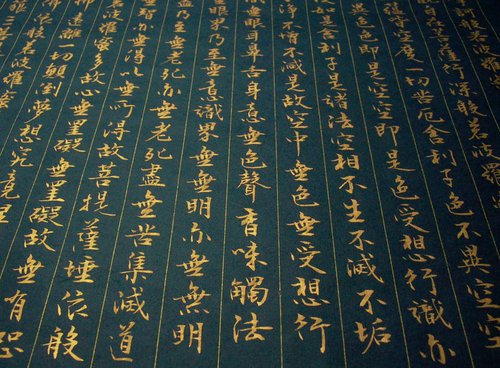 般若波羅蜜
薩行深般若波羅蜜
空度一切苦厄舍利子色不異空空
色色即是空空即是色受想行識亦
是舍利子是諸法空相不生不滅不垢
淨不增不減是故空中無色無受想行
眼耳鼻舌身意無色聲香味觸法
界乃至無意識界無無明亦無無明
乃至無老死亦無老死盡無苦集滅道
智亦無得以無所得故菩提薩埵依般
波羅蜜多故心無罣礙無罣礙故無有恐
遠離一切顛倒夢想究竟
依般若波羅蜜